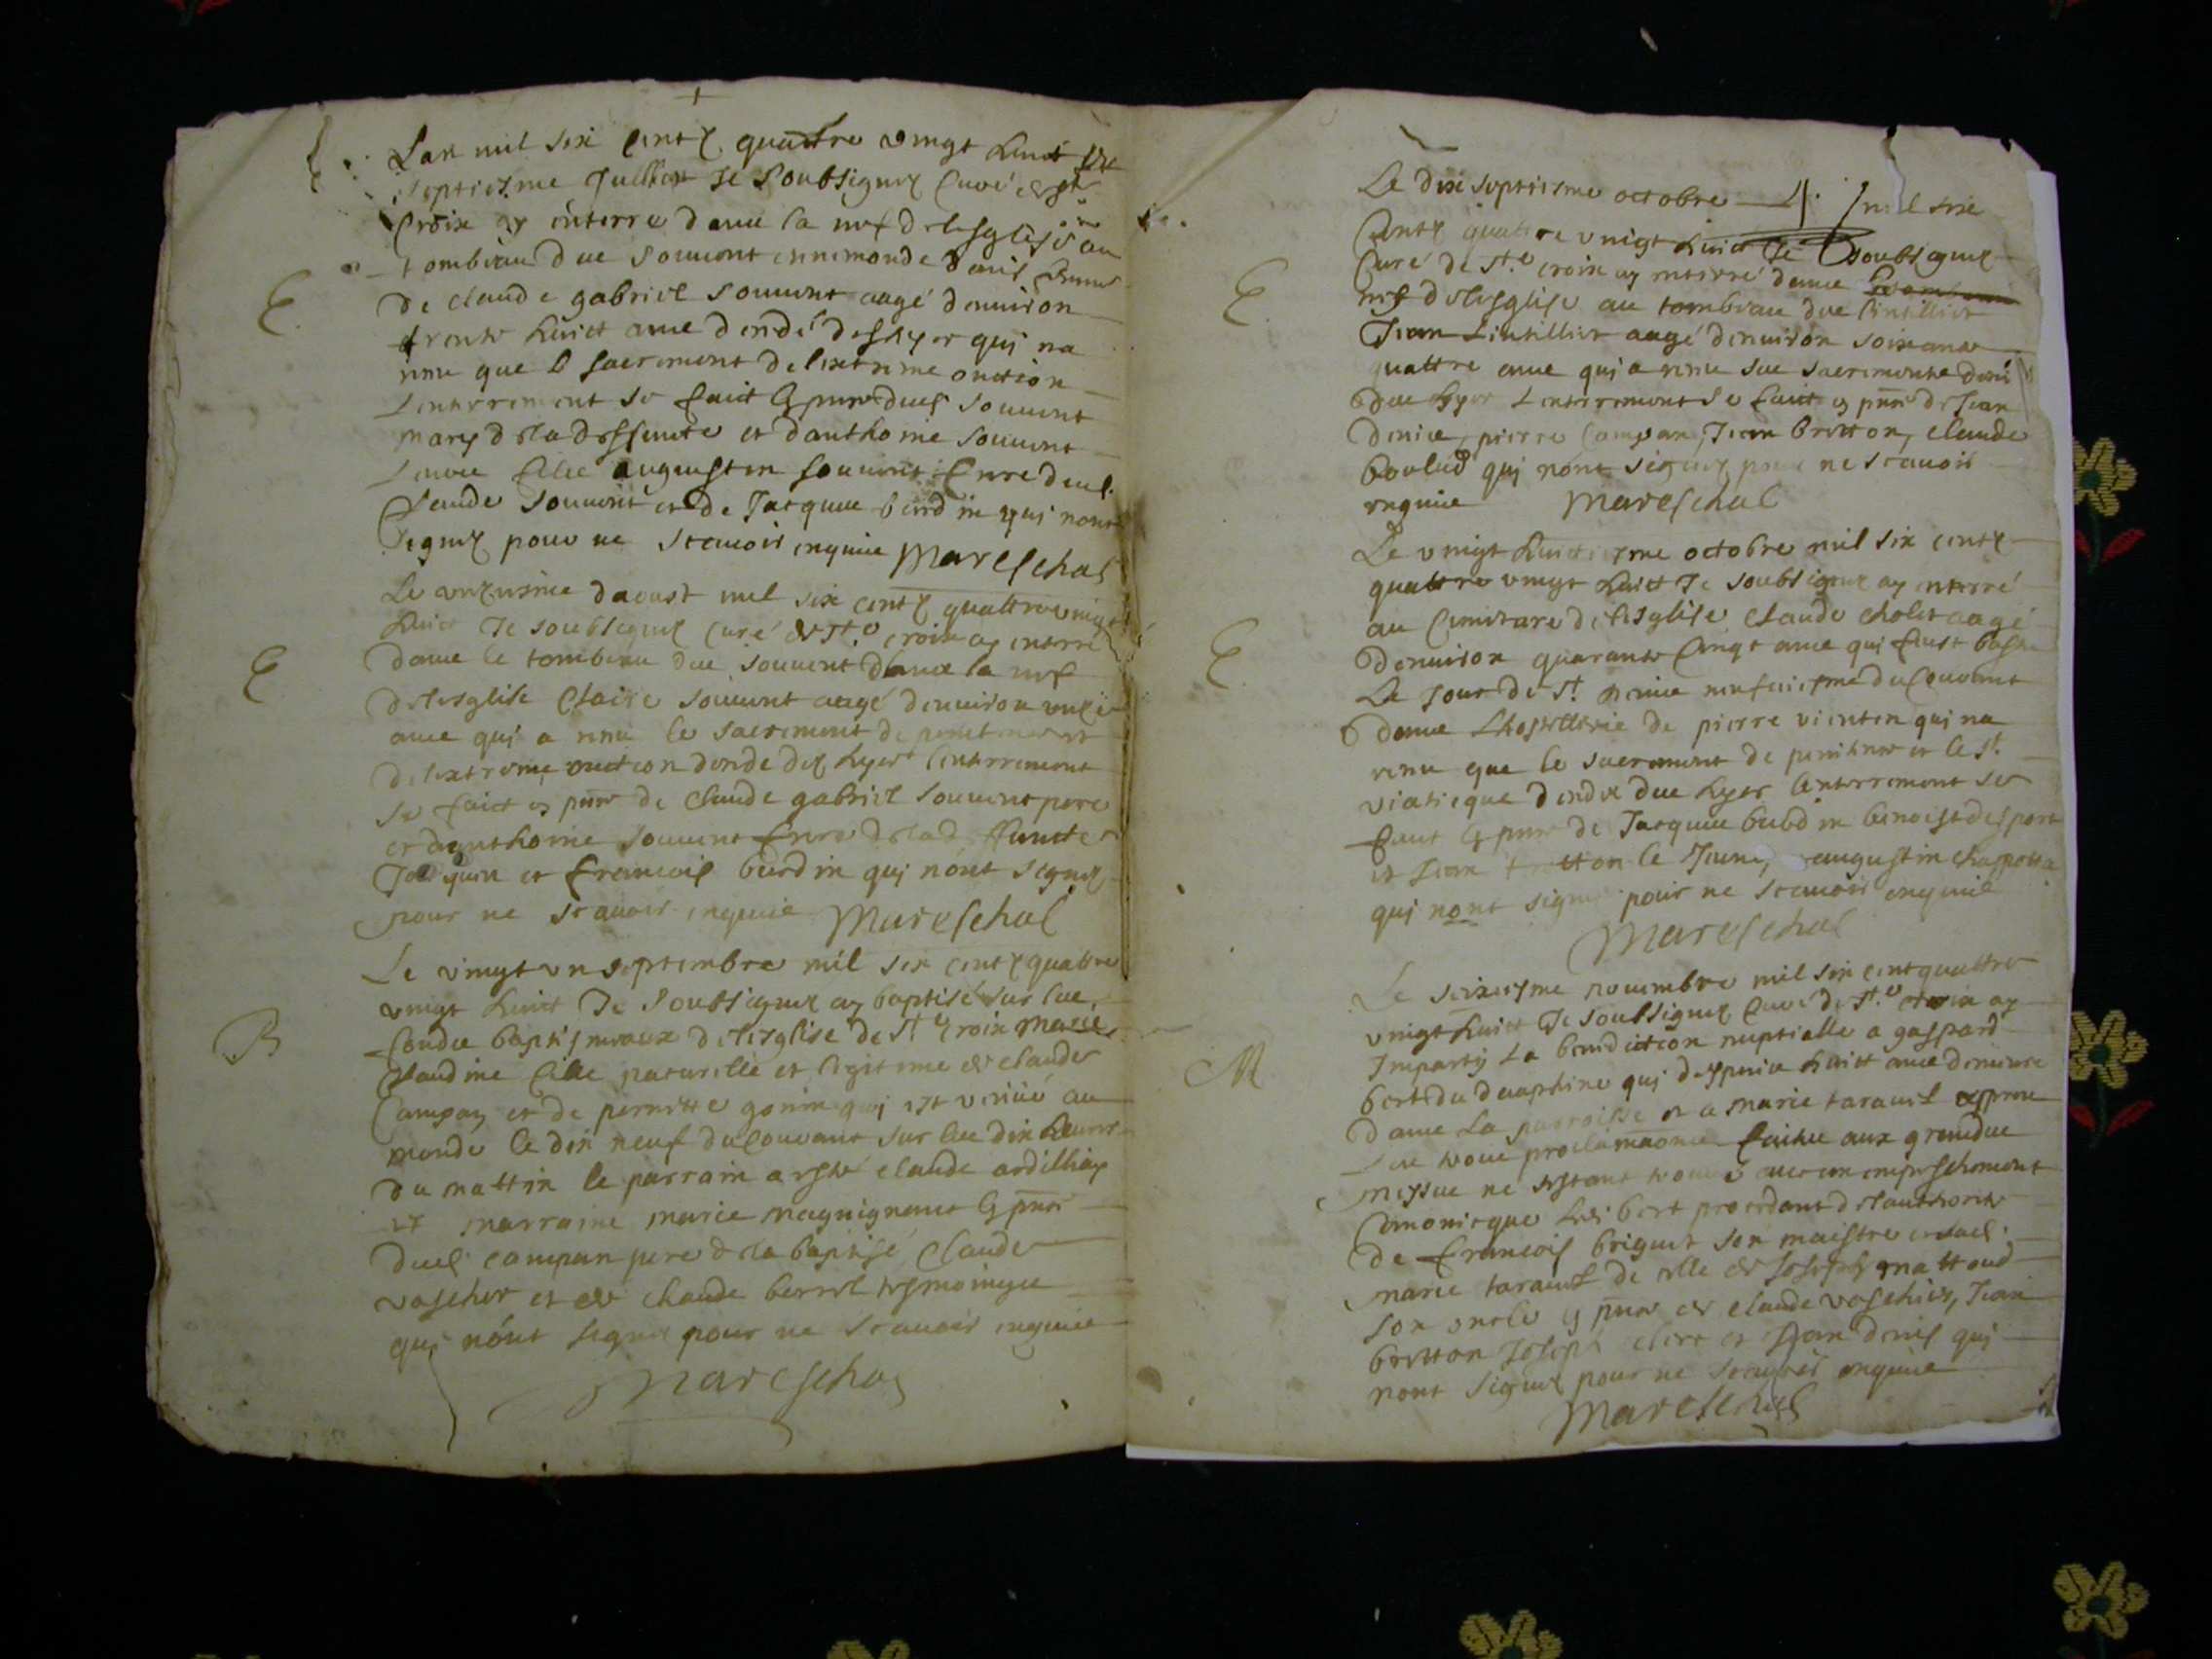 Lan mil six centz quattre vingt huict
septiesme Juillet Je Soubsignez Curé de Ste
Croix ay enterré dans la nef de lesglise au
tombeau des Souuent ennemonde denis femme
E
de claude gabriel Souuent aagé denuiron
trente huict ans decedé des hyer qui na
receu que le sacrement de lextreme onction
Lenterrement se faict es pnce dud Souuent
mary de la deffuncte et danthoine Souuent
augustin Souuent frere dud
Claude Souuent et de Jacques burdin qui nont
signez pour ne scauoir enquis Mareschal
Le unziesme daoust mil six centz quattre vingt
huict Je soubsignez curé de Ste croix ay enterré
E
dans le tombeau des Souuent dans la nef
de lesglise Claire Souuent aagé denuiron unze
ans qui a receu le sacrement de penitence et
de lextreme onction decedé des hyer lenterrement
se faict es pnce de claude gabriel Souuent pere
et danthoine Souuent frere de la deffuncte
et francois burdin qui nont signez
pour ne scauoir enquis Mareschal
Le vingt un septembre mil six centz quattre
vingt huict Je Soubsignez ay baptisé sur les
B
fondz baptismaux de lesglise de Ste Croix Marie
Claudine fille naturelle et legitime de claude
Campan et de pernette gonin qui est venue au
monde le dix neuf du courant sur les dix heures
du mattin le parrain a esté claude ardilliay
et marraine marie magnignant es pnce
dud campan pere de la baptisé Claude
vascher et de claude berret tesmoingz
qui nont signez pour ne scauoir enquis
Mareschal
Le dix septiesme octobre mil six
Centz quattre vingt huict Je Soubsignez
Curé de Ste croix ay enterré dans
E
nef de lesglise au tombeau des Lintillier
Jean Lintillier aagé denuiron soixante
quattre ans qui a receu ses sacrements decedé
des hyer Lenterrement se faict es pnce de Jean
denis, pierre Campan, Jean bretton, claude
boulud qui nont signez pour ne scauoir
enquis Mareschal
Le vingt huictiesme octobre mil six centz
quattre vingt huict Je soubsignez ay enterré
au Cimitare de lesglise claude cholet aagé
E
denuiron quarante Cinqt ans qui
Le Jour de St denis neufuiesme du Courant
dans Lhostellerie de pierre vienten qui na
receu que le sacrement de penitence et le St
viaticque decedé des hyer lenterrement se
faict es pnce de Jacques burdin benoist desport
et Jean bretton le Jeune, augustin chappota
qui nont signez pour ne scauoir enquis
Mareschal
Le seiziesme nouembre mil six cent quattre
vingt huict Je Soubsignez Curé de Ste croix ay
M
Imparty La benediction nuptialle a gaspard
bert du dauphiné qui despuis huict ans demeure
dans La parroisse et a marie tarauel appres
Les trois proclamaons faictes aux grandes
messes ne sestant trouué aucun empeschement
Canonicque Led bert procedant de lauthorité
de francois briquet son maistre et lad
marie tarauel de celle de Joseph mattoud
son oncle es pnce de claude vaschier, Jean
bretton Joseph clere et Jean denis qui
nont signez pour ne scauoir enquis
Mareschal